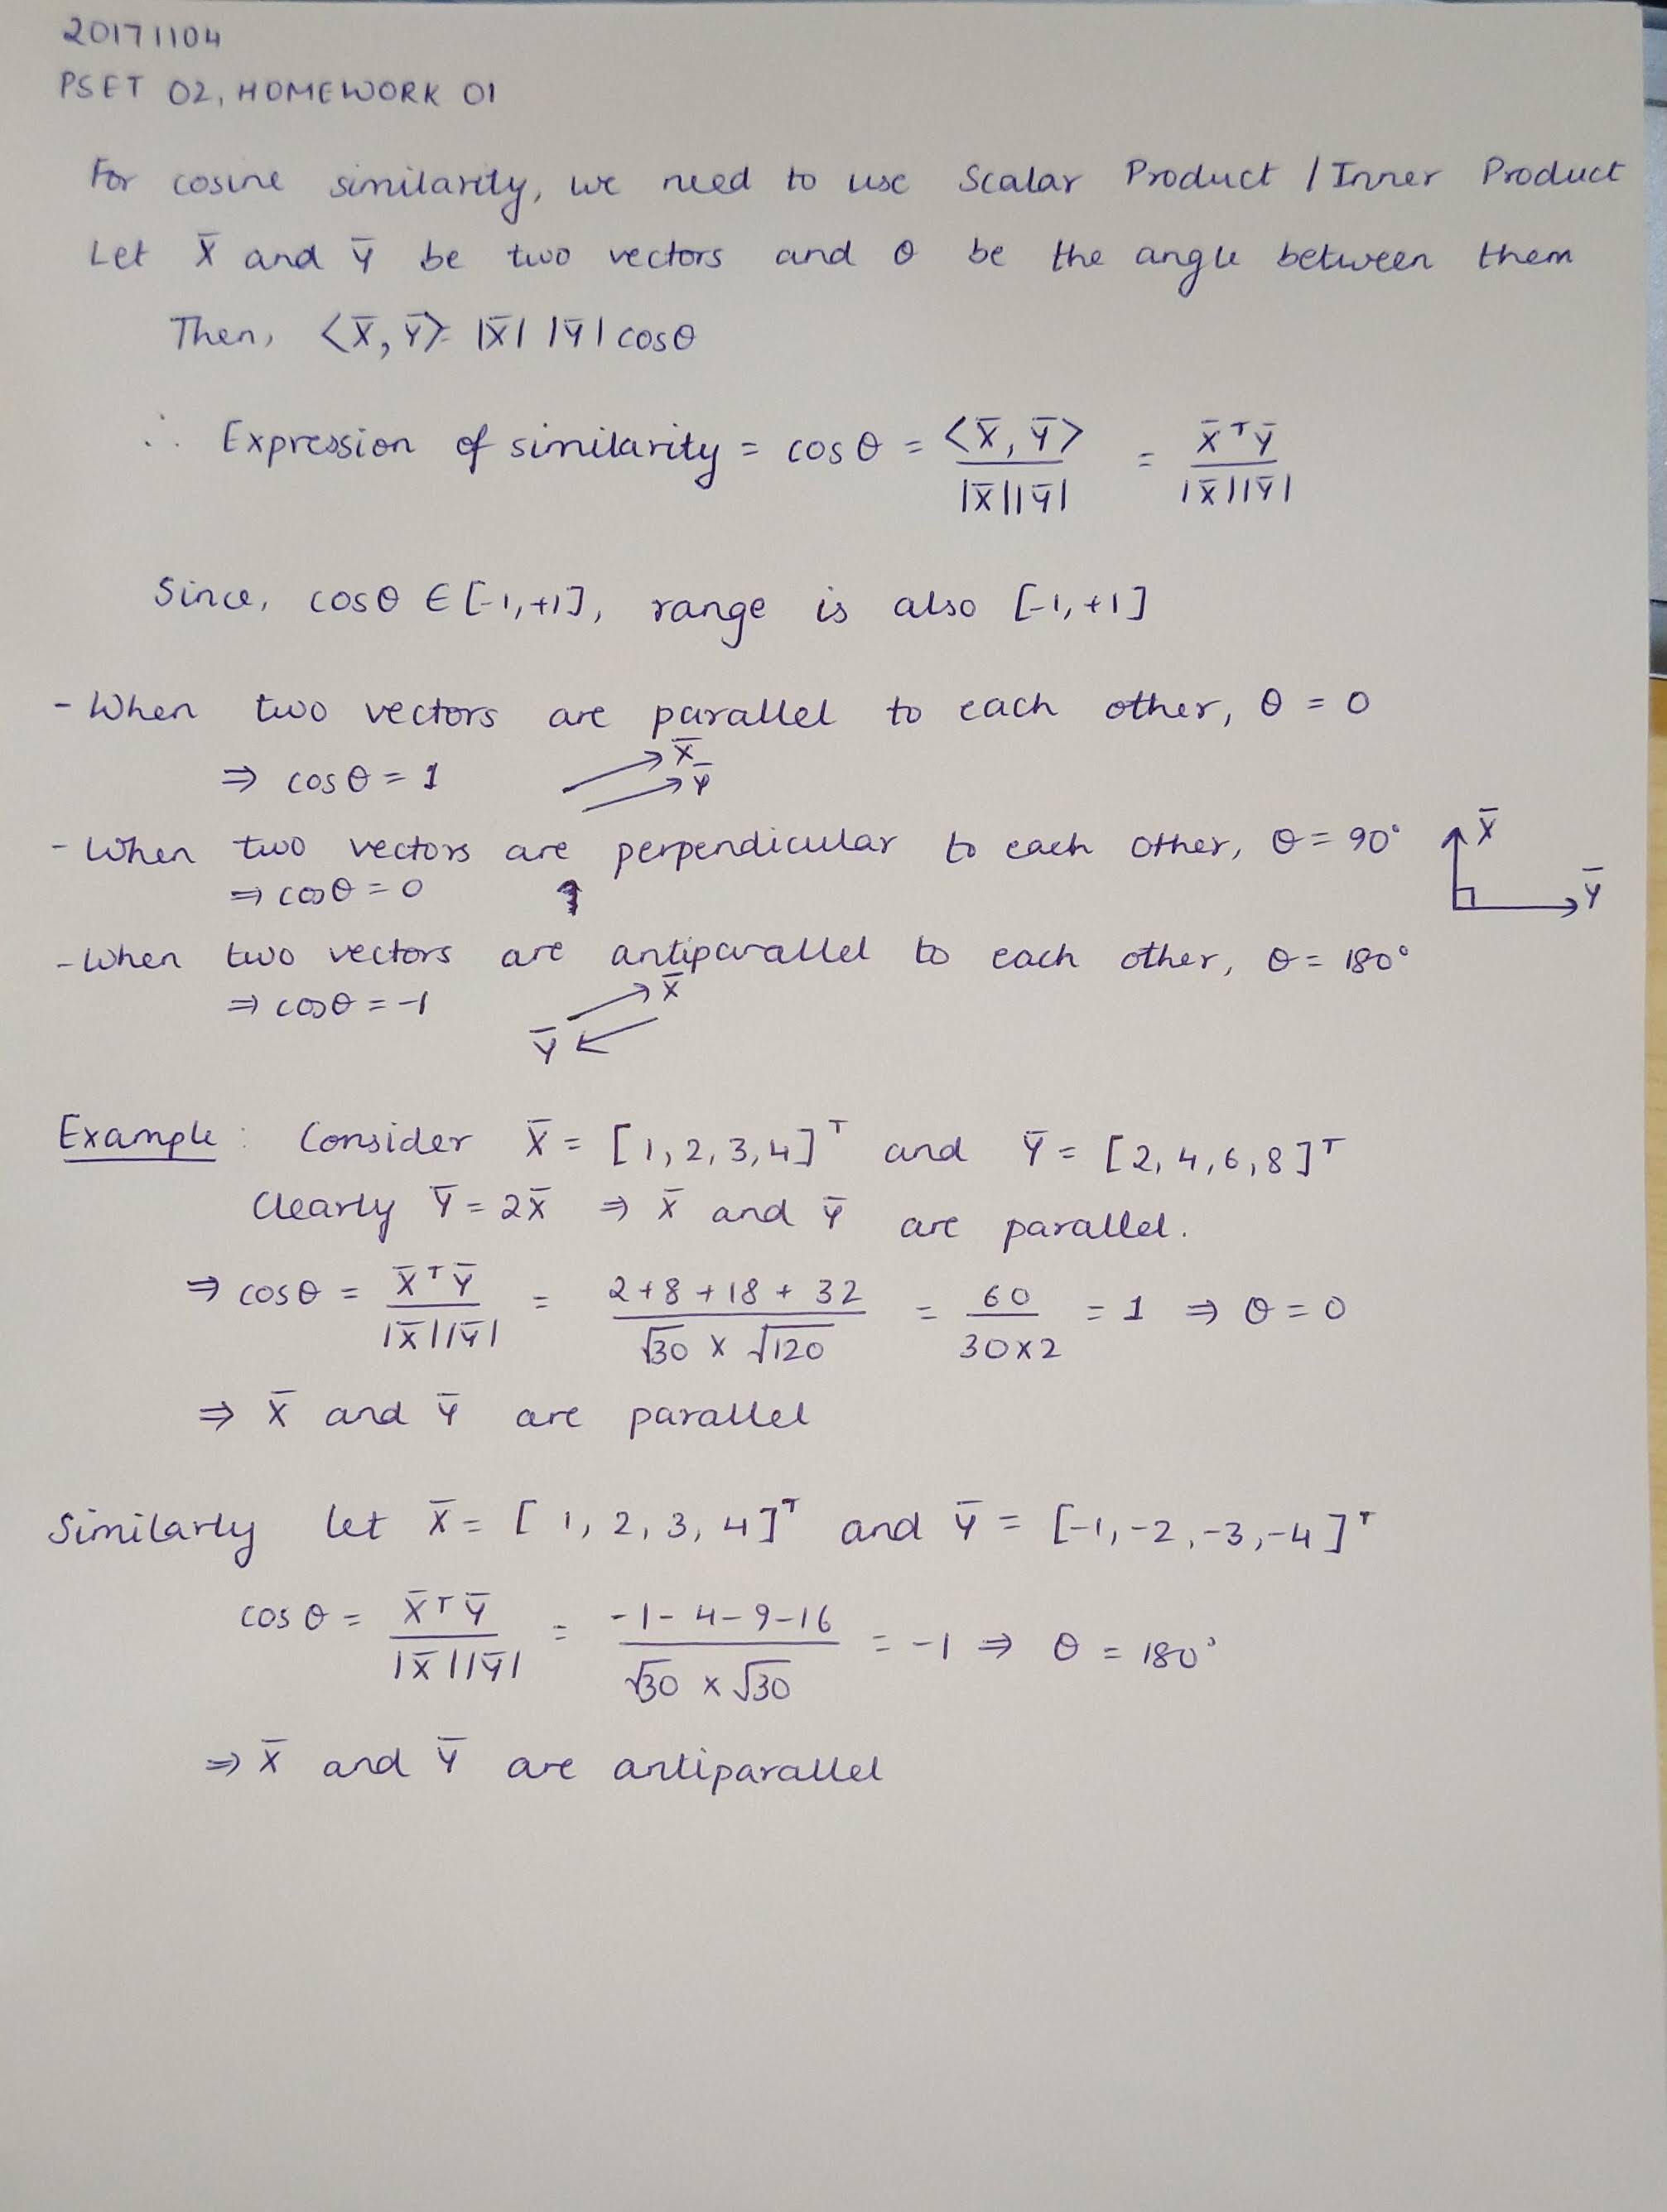 20171104
PSET 02, HOMEWORK 01
For cosine similarity, we need to use Scalar Product / Inner Product
Let X̄ and Ȳ be two vectors and θ be the angle between them
Then, <X̄, Ȳ> = |X̄| |Ȳ| cosθ
∴ Expression of similarity = cos θ = <X̄, Ȳ> / |X̄||Ȳ| = X̄ᵀȲ / |X̄||Ȳ|
Since, cosθ ∈ [-1,+1], range is also [-1,+1]
- When two vectors are parallel to each other, θ = 0
⇒ cosθ = 1 X̄ Ȳ
- When two vectors are perpendicular to each other, θ = 90° X̄ Ȳ
⇒ cosθ = 0
- When two vectors are antiparallel to each other, θ = 180°
⇒ cosθ = -1 X̄ Ȳ
Example : Consider X̄ = [1, 2, 3, 4]ᵀ and Ȳ = [2, 4, 6, 8]ᵀ
Clearly Ȳ = 2X̄ ⇒ X̄ and Ȳ are parallel.
⇒ cosθ = X̄ᵀȲ / |X̄||Ȳ| = 2+8+18+32 / √30 × √120 = 60 / 30×2 = 1 ⇒ θ = 0
⇒ X̄ and Ȳ are parallel
Similarly let X̄ = [1, 2, 3, 4]ᵀ and Ȳ = [-1, -2, -3, -4]ᵀ
cos θ = X̄ᵀȲ / |X̄||Ȳ| = -1-4-9-16 / √30 × √30 = -1 ⇒ θ = 180°
⇒ X̄ and Ȳ are antiparallel